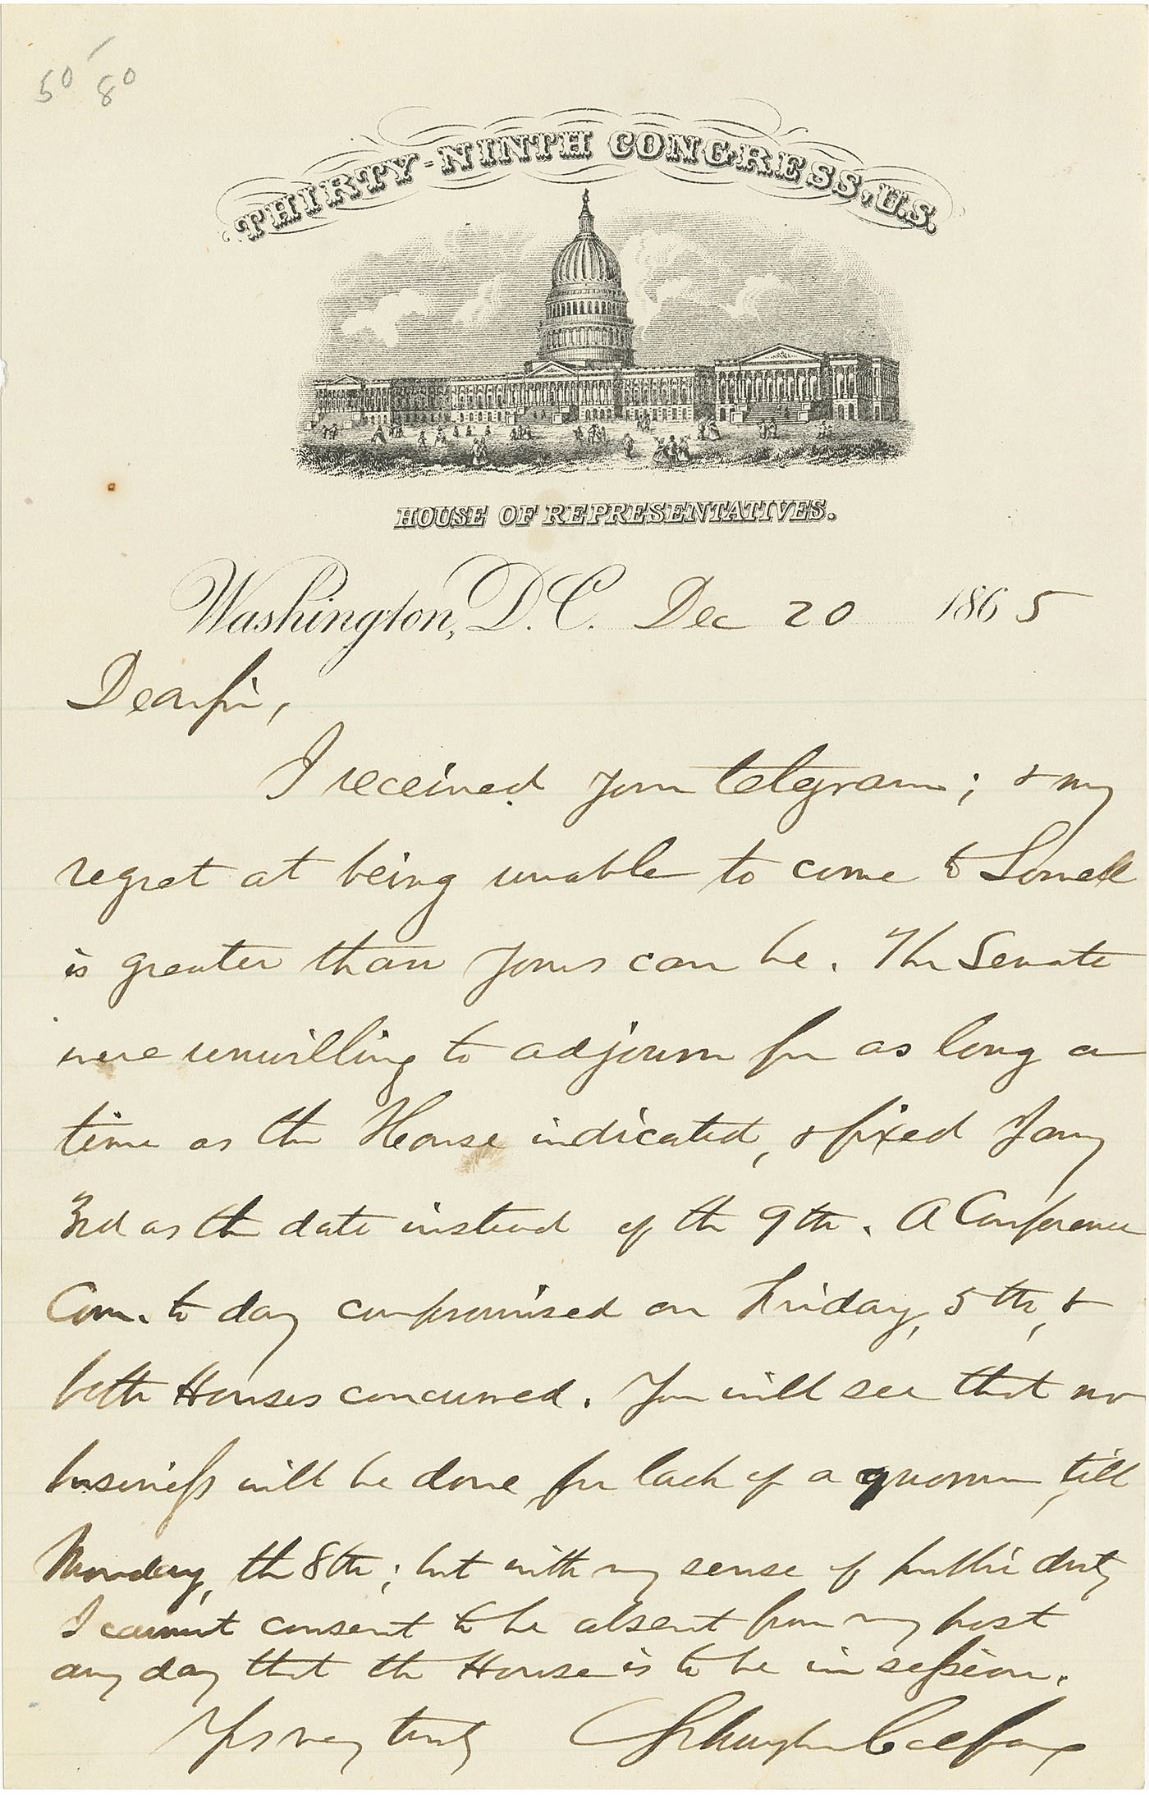 50 80
THIRTY-NINTH CONGRESS, U.S.
HOUSE OF REPRESENTATIVES.
Washington, D.C. Dec 20 1865
Dear Sir,
I received your telegram; & my
regret at being unable to come to Lowell
is greater than yours can be. The Senate
were unwilling to adjourn for as long a
time as the House indicated, & fixed Jany
3rd as the date instead of the 9th. A Conference
Com. to day compromised on Friday, 5th, &
both Houses concurred. You will see that no
business will be done for lack of a quorum, till
Monday, the 8th; but with my sense of public duty
I cannot consent to be absent from my post
any day that the House is to be in session.
Yrs very truly Schuyler Colfax